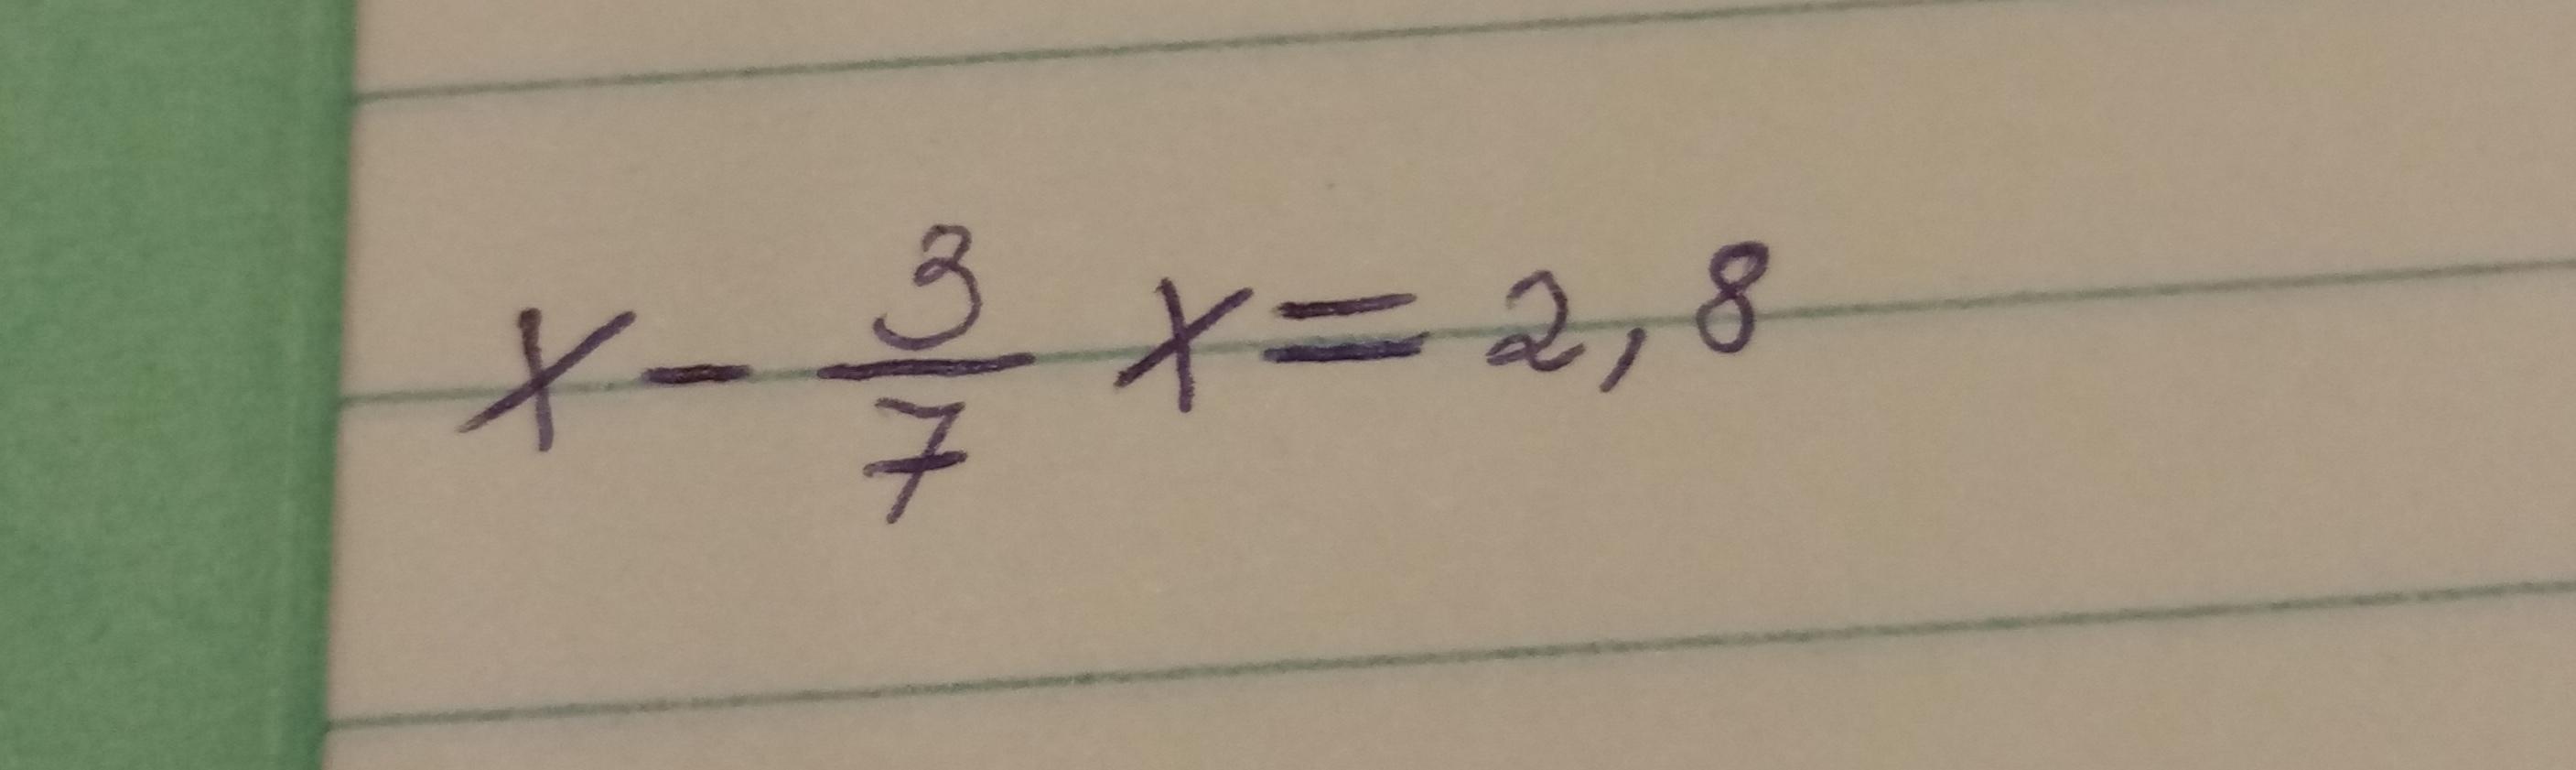 x - 3/7 x = 2,8